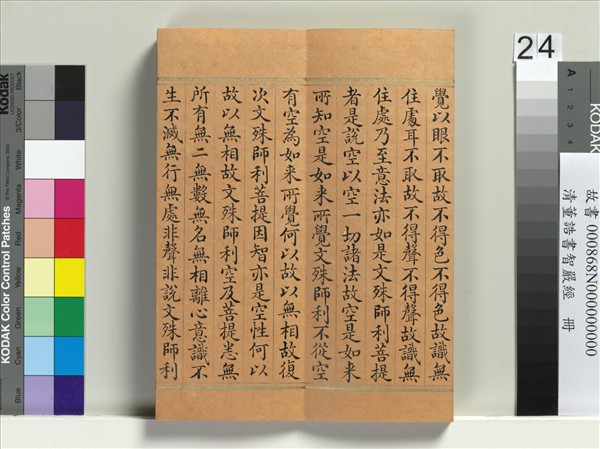 覺以眼不取故不得色不得色故識無
住處耳不取故不得聲不得聲故識無
住處乃至意法亦如是文殊師利菩提
者是說空以空一切諸法故空是如来
所知空是如来所覺文殊師利不從空
有空為如来所覺何以故以無相故復
次文殊師利菩提因智亦是空性何以
故以無相故文殊師利空及菩提悉無
所有無二無數無名無相離心意識不
生不滅無行無處非聲非說文殊師利
24
故書 000868N000000000
清董誥書智嚴經 冊
Kodak
KODAK Color Control Patches
Blue
Cyan
Green
Yellow
Red
Magenta
White
3/Color
Black
A 1 2 3 4
KODAK